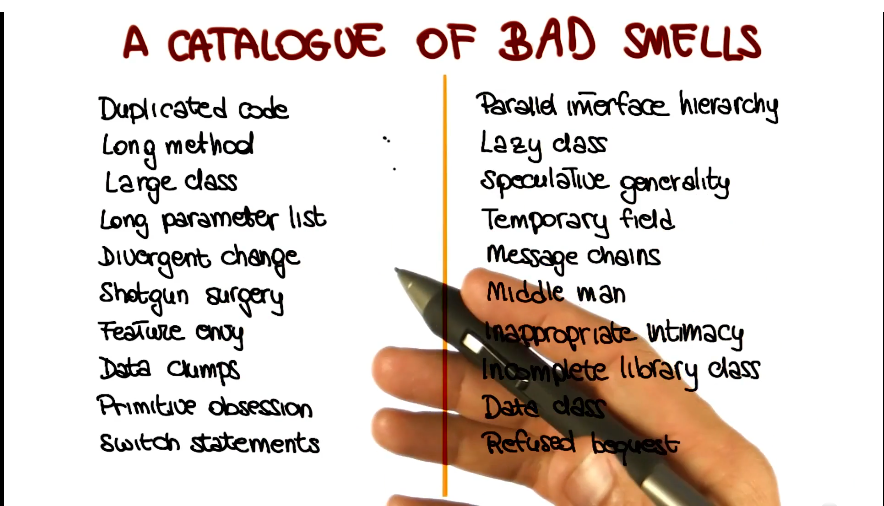 A CATALOGUE OF BAD SMELLS
Duplicated code
Long method
Large class
Long parameter list
Divergent change
Shotgun surgery
Feature envy
Data clumps
Primitive obsession
Switch statements
Parallel interface hierarchy
Lazy class
Speculative generality
Temporary field
Message chains
Middle man
Inappropriate intimacy
Incomplete library class
Data class
Refused bequest